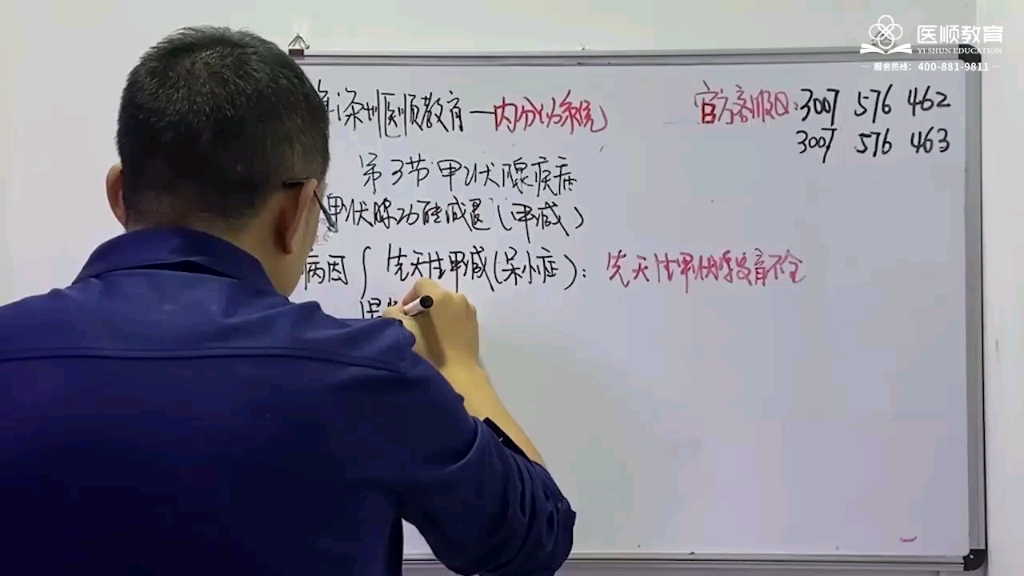 医顺教育
YI SHUN EDUCATION
服务热线：400-881-9811
深圳医顺教育—内分泌系统
官方客服QQ：3007 576 462
3007 576 463
第3节甲状腺疾病
甲状腺功能减退（甲减）
病因{先天性甲减（呆小症）：先天性甲状腺发育不全